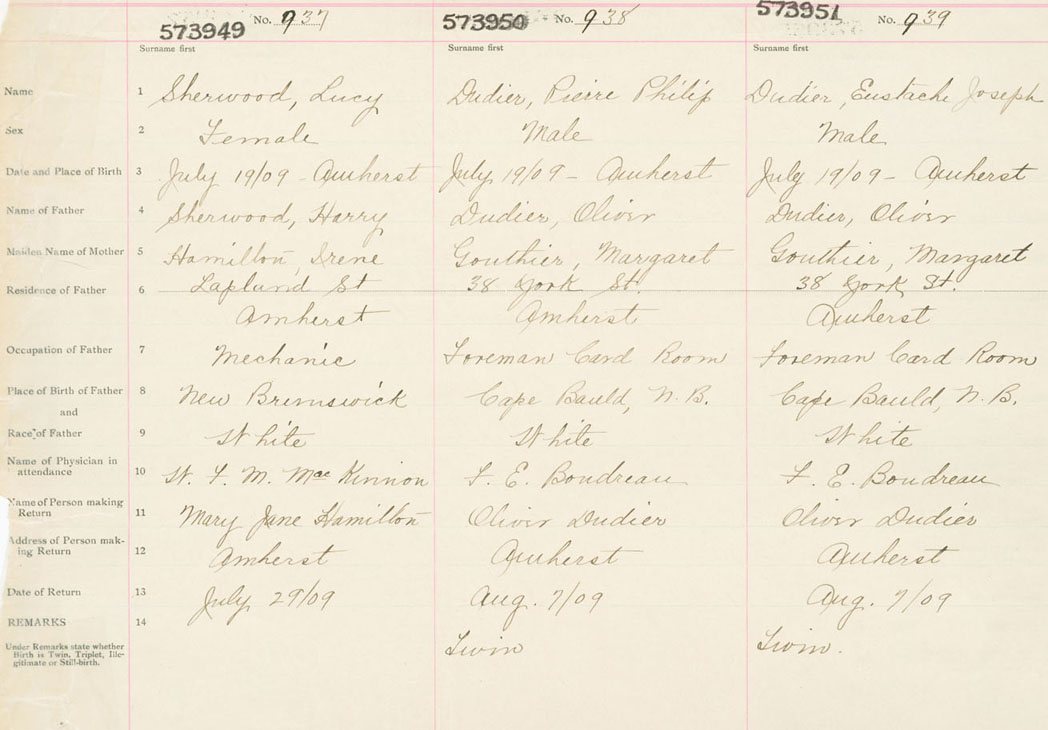 573949 No. 937 573950 No. 938 573951 No. 939
Surname first Surname first Surname first
Name 1 Sherwood, Lucy Dudier, Pierre Philip Dudier, Eustache Joseph
Sex 2 Female Male Male
Date and Place of Birth 3 July 19/09 - Amherst July 19/09 - Amherst July 19/09 - Amherst
Name of Father 4 Sherwood, Harry Dudier, Oliver Dudier, Oliver
Maiden Name of Mother 5 Hamilton, Irene Gouthier, Margaret Gouthier, Margaret
Residence of Father 6 Lapland St 38 York St. 38 York St.
Amherst Amherst Amherst
Occupation of Father 7 Mechanic Foreman Card Room Foreman Card Room
Place of Birth of Father 8 New Brunswick Cape Bauld, N.B. Cape Bauld, N.B.
and
Race of Father 9 White White White
Name of Physician in
attendance 10 W. F. M. MacKinnon F. E. Boudreau F. E. Boudreau
Name of Person making
Return 11 Mary Jane Hamilton Oliver Dudier Oliver Dudier
Address of Person mak-
ing Return 12 Amherst Amherst Amherst
Date of Return 13 July 29/09 Aug. 7/09 Aug. 7/09
REMARKS 14
Under Remarks state whether
Birth is Twin, Triplet, Ille-
gitimate or Still-birth.
Twin Twin.